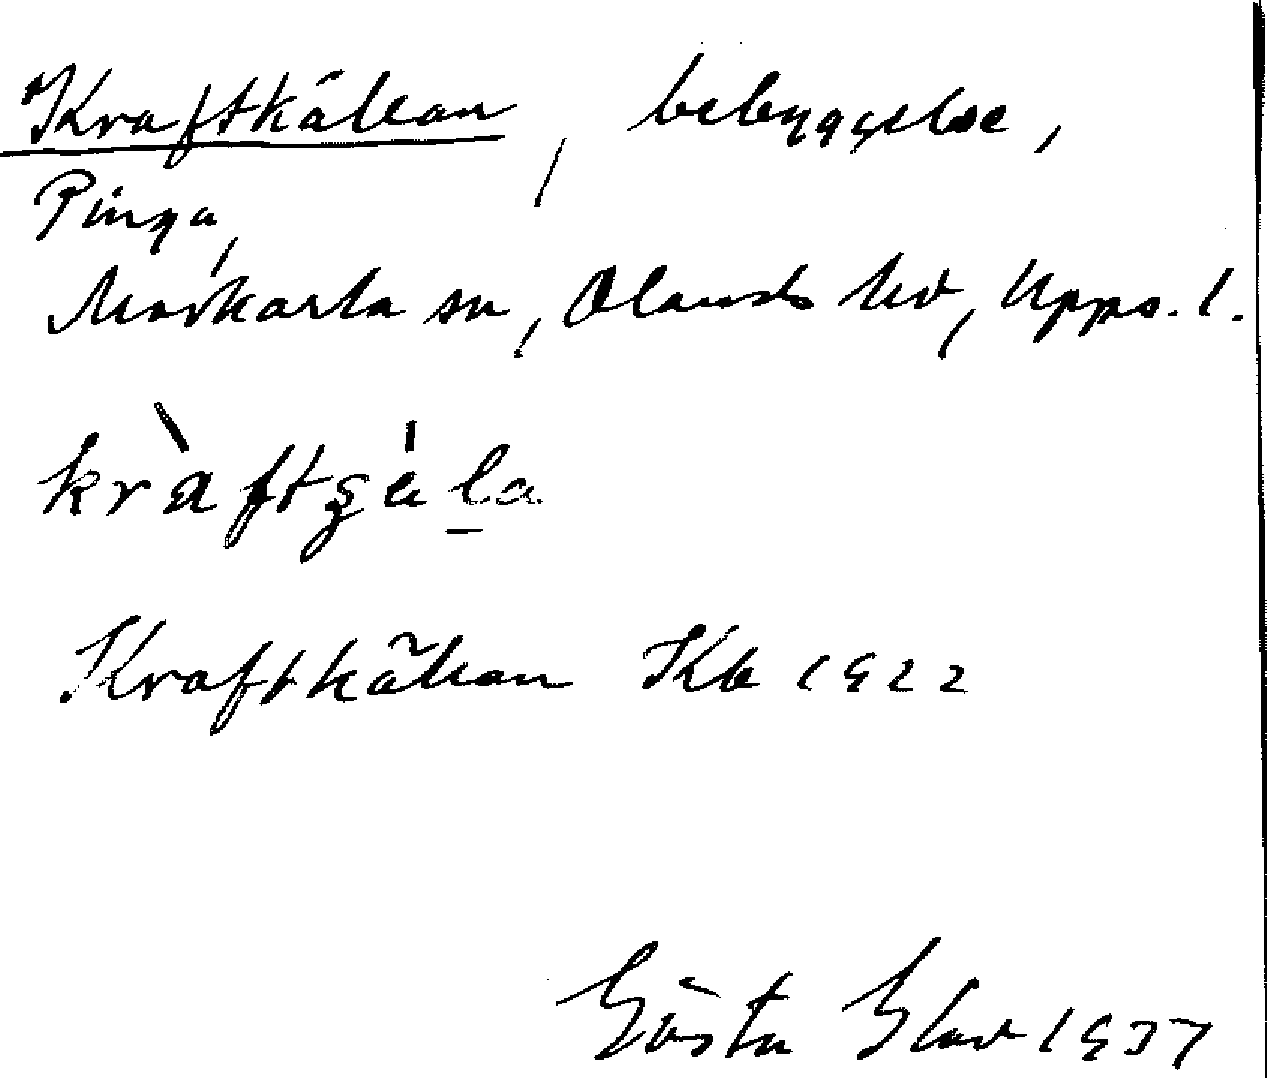 Kraftkällan, bebyggelse,
Pinga,
Morkarla sn, Olands hd, Upps. l.
Kraftkällan Kb 1922
Gösta 1937